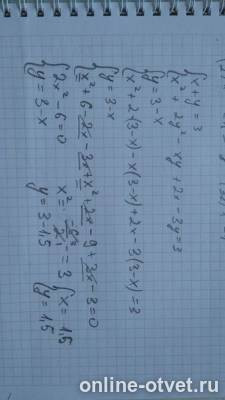 {x+y=3
{x²+2y²-xy+2x-3y=3
{y=3-x
{x²+2(3-x)-x(3-x)+2x-3(3-x)=3
{y=3-x
{x²+6-2x-3x+x²+2x-9+3x-3=0
{2x²-6=0
{y=3-x
y=3-1,5
{x=1,5
{y=1,5
online-otvet.ru